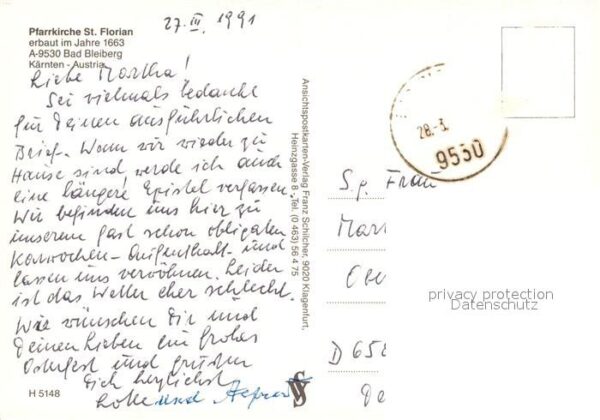 27. III. 1991
Pfarrkirche St. Florian
erbaut im Jahre 1663
A-9530 Bad Bleiberg
Kärnten - Austria
Liebe Martha!
Sei vielmals bedankt
für Deinen ausführlichen
Brief. Wenn wir wieder zu
Hause sind, werde ich auch
eine längere Epistel verfassen.
Wir befinden uns hier zu
unserem fast schon obligaten
Karwochen-Aufenthalt und
lassen uns verwöhnen. Leider
ist das Wetter eher schlecht.
Wir wünschen Dir und
Deinen Lieben ein frohes
Osterfest und grüßen
Dich herzlichst
und
H 5148
Ansichtspostkarten-Verlag Franz Schilcher, 9020 Klagenfurt,
Heinzgasse 8 - Tel. (0 463) 56 4 75
28.-3.
9530
S.g. Frau
Mar
D 658
privacy protection
Datenschutz